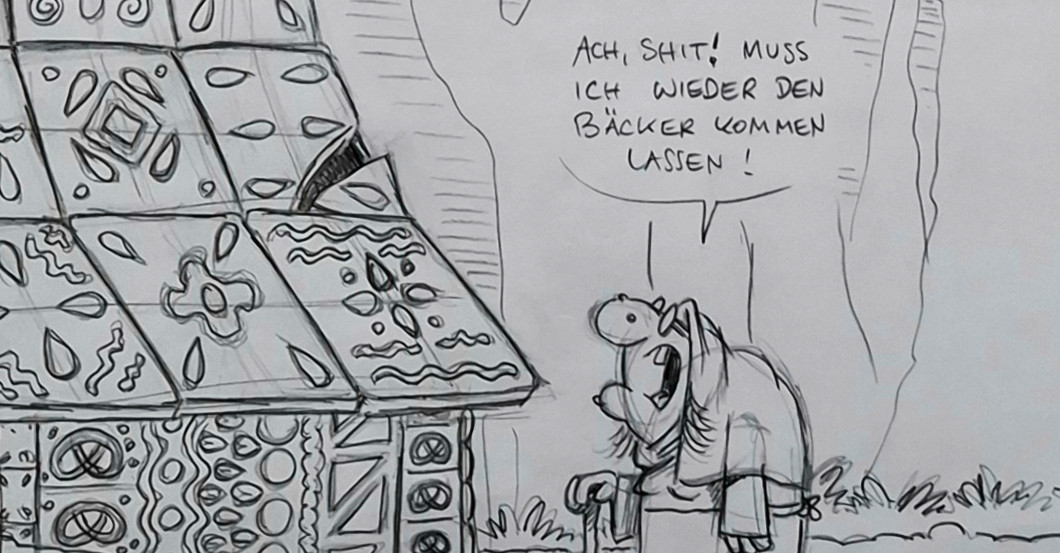 ACH, SHIT! MUSS
ICH WIEDER DEN
BÄCKER KOMMEN
LASSEN!